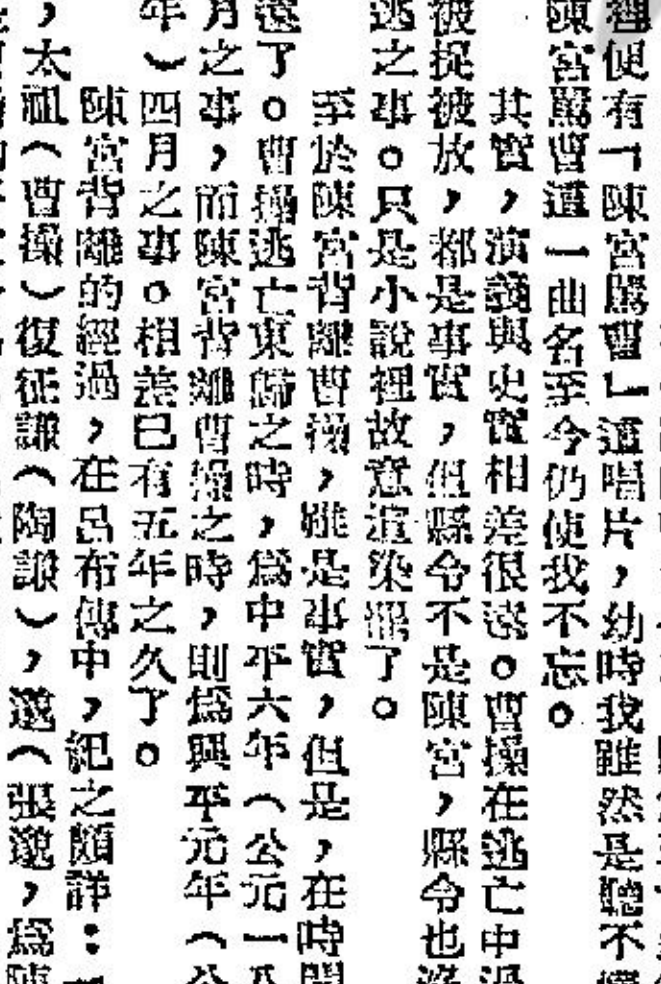 裡便有「陳宮罵曹」這唱片,幼時我雖然是聽不
陳宮罵曹這一曲名至今仍使我不忘。
其實,演義與史實相差很遠。曹操在逃亡中過
被捉被放,都是事實,但縣令不是陳宮,縣令也
逃之事。只是小說裡故意渲染罷了。
至於陳宮背離曹操,雖是事實,但是,在時間
遠了。曹操逃亡東歸之時,為中平六年(公元一八
月之事,而陳宮背離曹操之時,則為興平元年(公
年)四月之事。相差已有五年之久了。
陳宮背離的經過,在呂布傳中,紀之頗詳:「
,太祖(曹操)復征謙(陶謙),邈(張邈,為陳